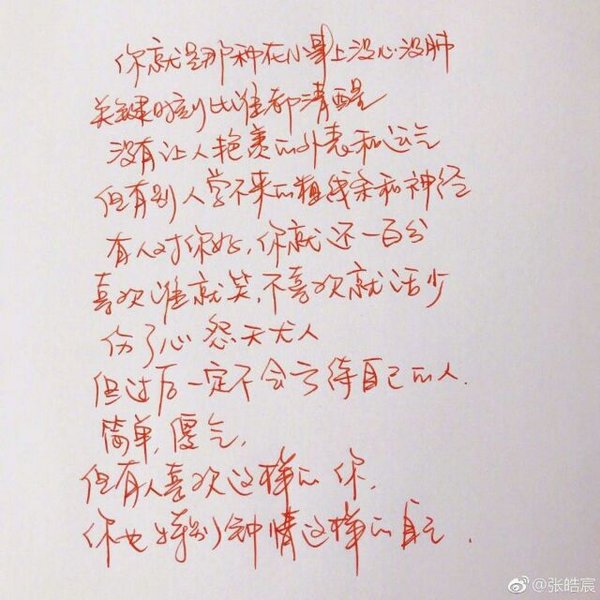 你就是那种在小事上没心没肺
关键时刻比谁都清醒
没有让人艳羡的外表和运气
但有别人学不来的粗线条和神经
有人对你好，你就还一百分
喜欢谁就笑，不喜欢就话少
伤了心怨天尤人
但过后一定不会亏待自己的人.
简单，傻气，
但有人喜欢这样的你，
你也特别钟情这样的自己.
@张皓宸